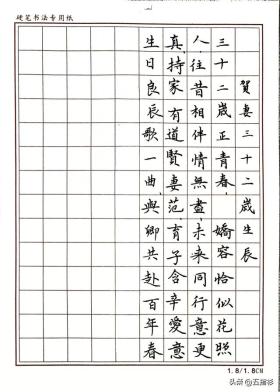 硬笔书法专用纸
賀妻三十二歲生辰
三十二歲正青春，嬌容恰似花照
人，往昔相伴情無盡，未來同行意更
真，持家有道賢妻范，育子含辛愛意
生日良辰歌一曲，與卿共赴百年春
1.8/1.8CM